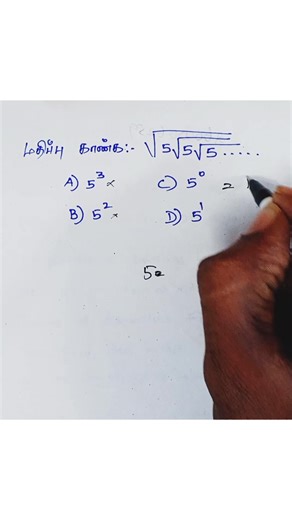 மதிப்பு காண்க:- √5√5√5.....
A) 5³ × C) 5⁰ =
B) 5² × D) 5¹
5